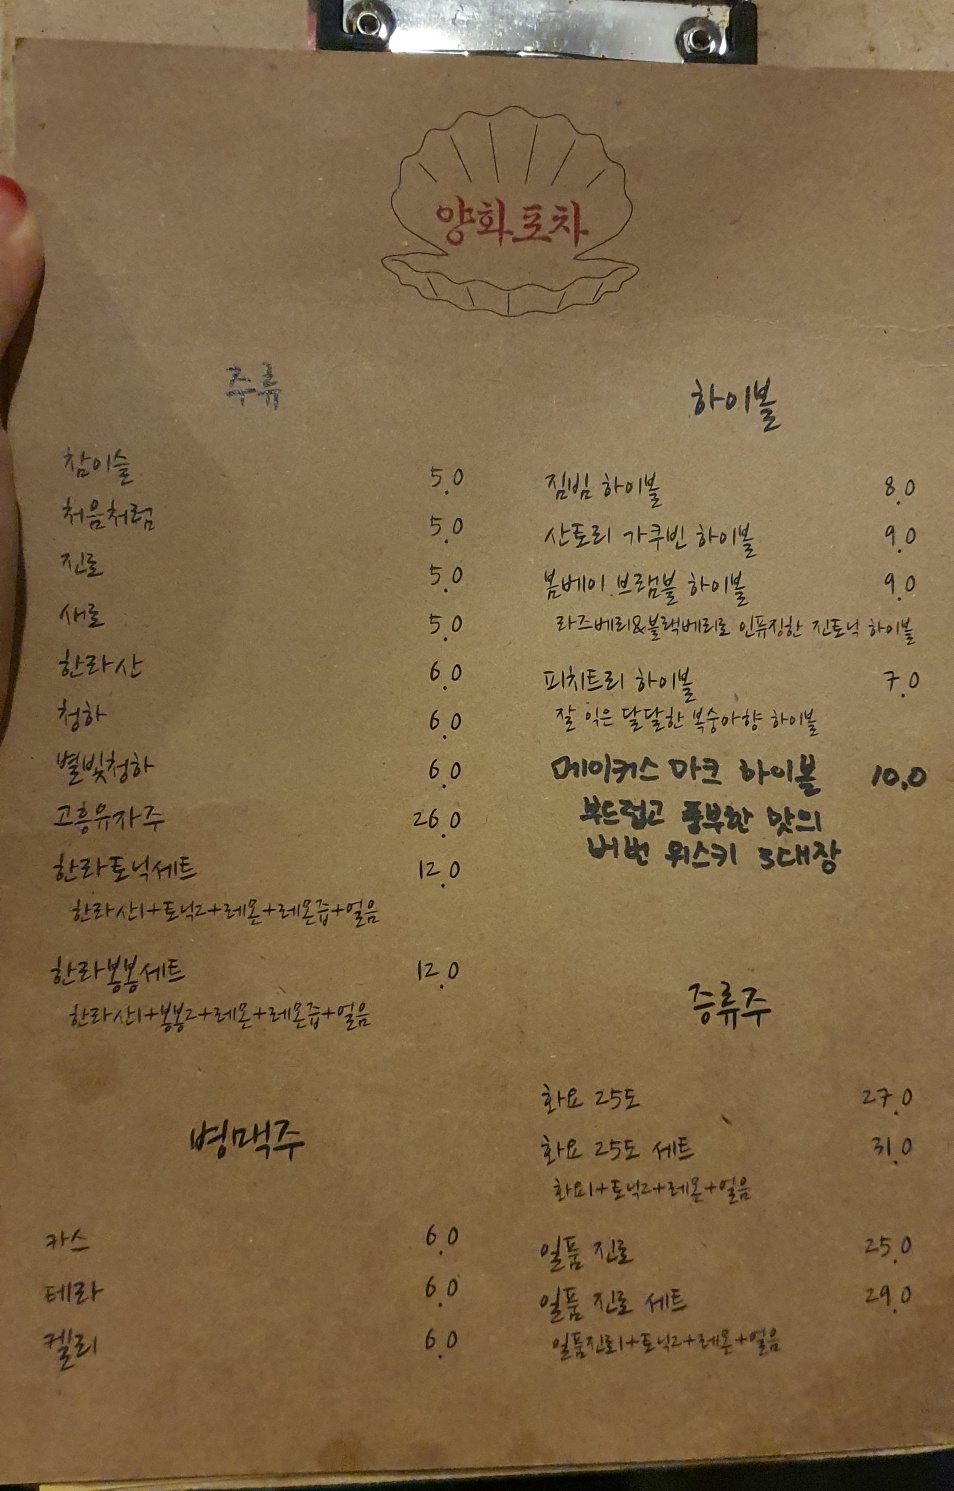 양화포차
주류
참이슬 5.0
처음처럼 5.0
진로 5.0
새로 5.0
한라산 6.0
청하 6.0
별빛청하 6.0
고흥유자주 26.0
한라토닉세트 12.0
한라산1+토닉2+레몬+레몬즙+얼음
한라봉봉세트 12.0
한라산1+봉봉2+레몬+레몬즙+얼음
병맥주
카스 6.0
테라 6.0
켈리 6.0
하이볼
짐빔 하이볼 8.0
산토리 가쿠빈 하이볼 9.0
봄베이 브램블 하이볼 9.0
라즈베리&블랙베리로 인퓨징한 진토닉 하이볼
피치트리 하이볼 7.0
잘 익은 달달한 복숭아향 하이볼
메이커스 마크 하이볼 10.0
부드럽고 풍부한 맛의
버번 위스키 3대장
증류주
화요 25도 27.0
화요 25도 세트 31.0
화요1+토닉2+레몬+얼음
일품 진로 25.0
일품 진로 세트 29.0
일품진로1+토닉2+레몬+얼음